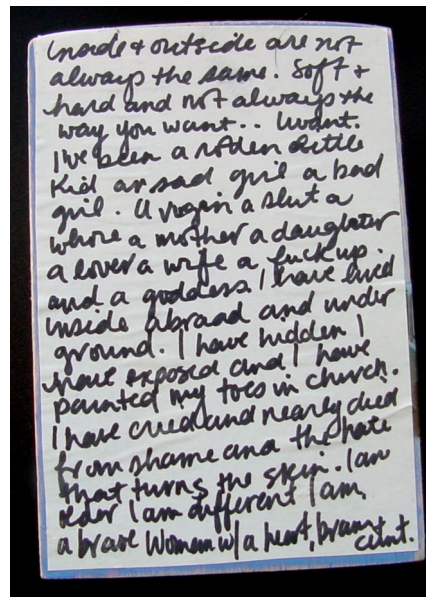 inside + outside are not
always the same. Soft +
hard and not always the
way you want.. I want.
I've been a rotten little
kid a sad girl a bad
girl. A virgin a slut a
whore a mother a daughter
a lover a wife a fuck up.
and a goddess. I have lived
inside abroad and under
ground. I have hidden I
have exposed and I have
painted my toes in church.
I have cried and nearly died
from shame and the hate
that turns the skin. I am
older I am different I am,
a brave Woman w/ a heart, brain +
cunt.